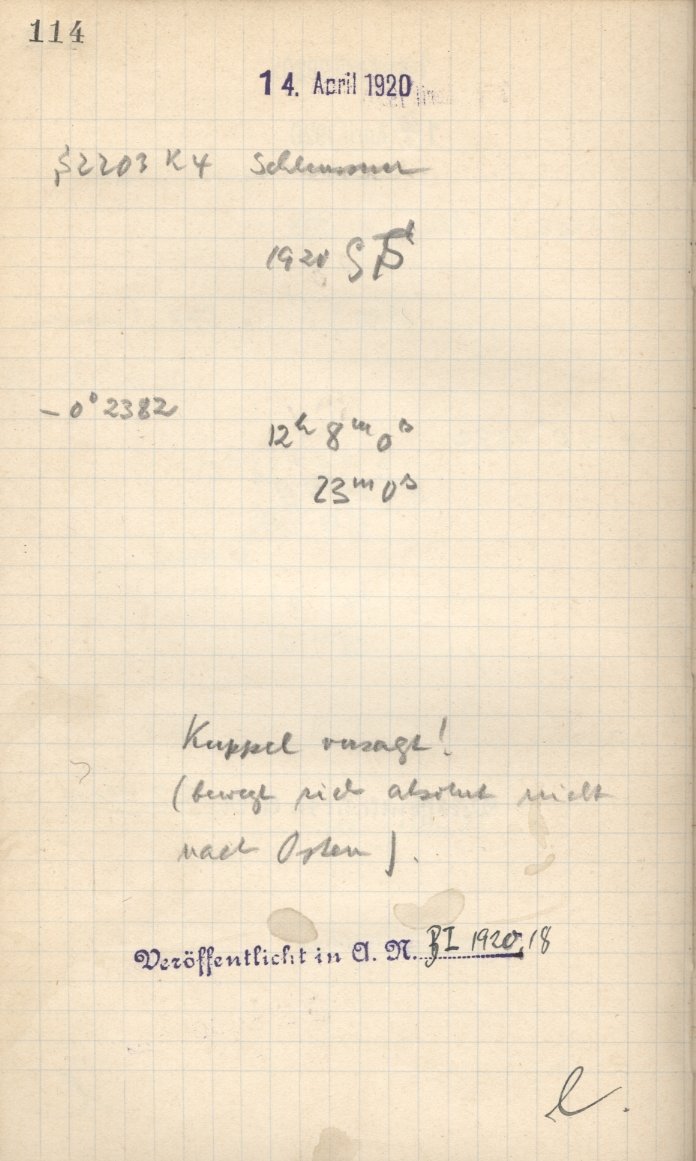 114
14. April 1920
2203 K4 Schleussner
1920
– 0° 2382
12ʰ 8ᵐ 0ˢ
23ᵐ 0ˢ
Kuppel versagt!
(bewegt sich absolut nicht
nach Osten).
Veröffentlicht in A. N. BZ I 1920, 18